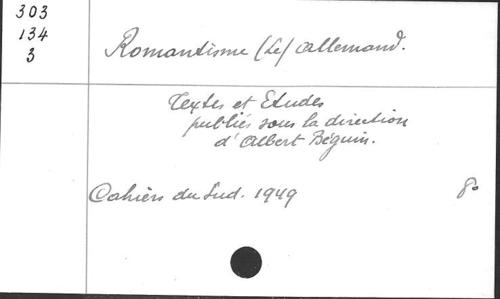 303
134
3
Romantisme (Le) allemand.
Textes et Etudes
publiés sous la direction
d'Albert Béguin.
Cahiers du Sud. 1949
8°